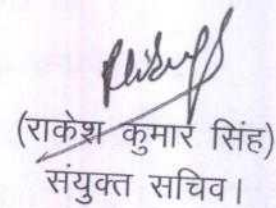 (राकेश कुमार सिंह)
संयुक्त सचिव।